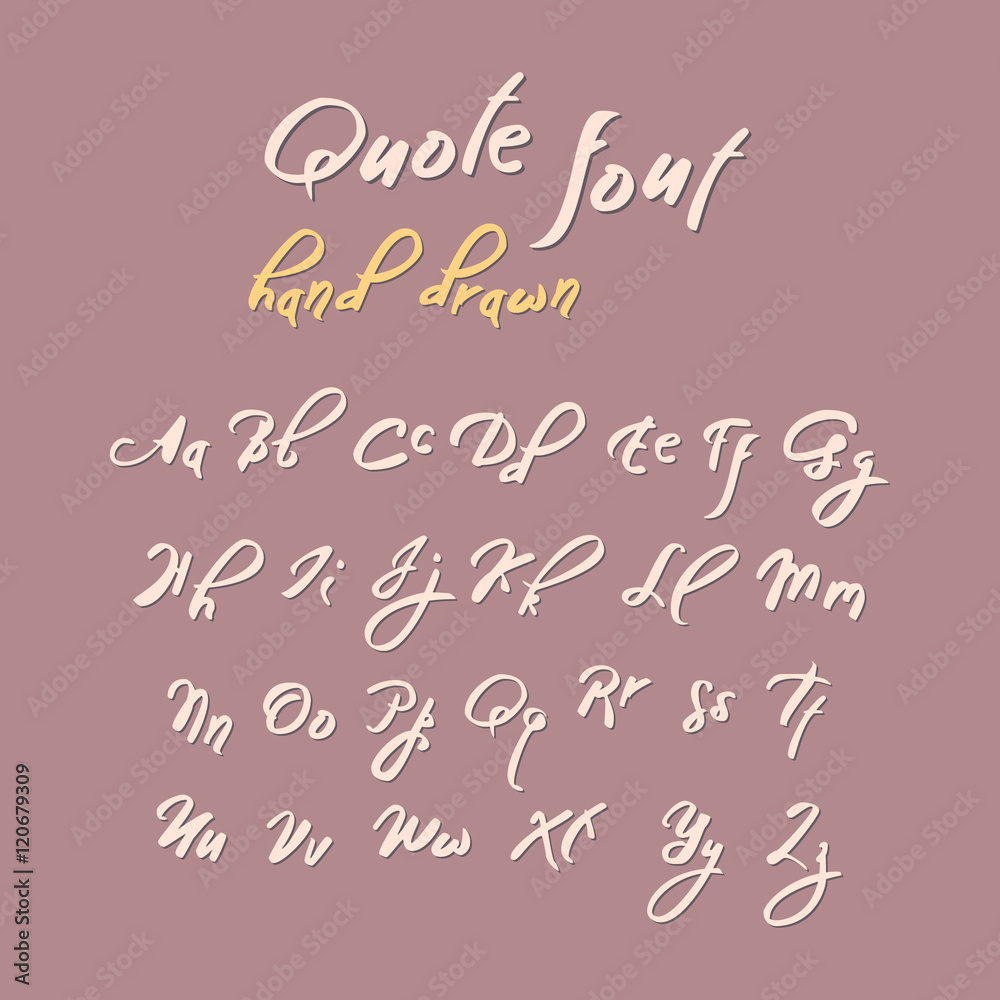 Quote font
hand drawn
Aa Bb Cc Dd Ee Ff Gg
Hh Ii Jj Kk Ll Mm
Nn Oo Pp Qq Rr Ss Tt
Uu Vv Ww Xx Yy Zz
Adobe Stock | #120679309